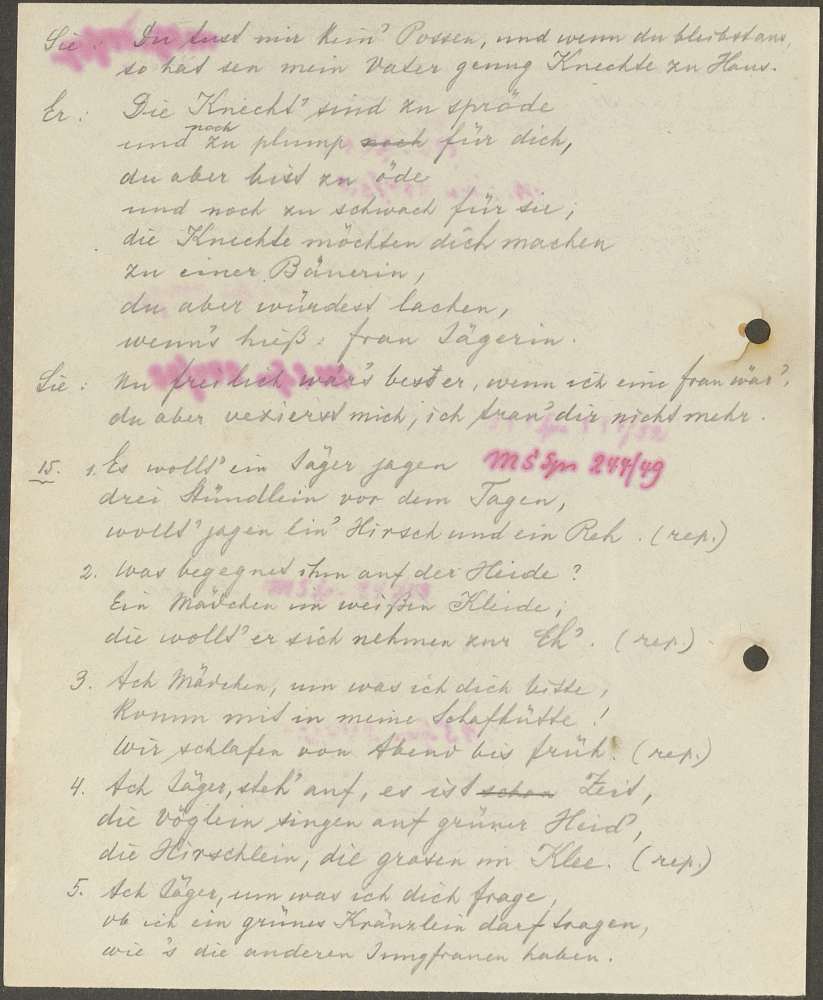 Sie: Du tust mir kein' Possen, und wenn du bleibst aus,
so hat sen mein Vater genug Knechte zu Haus.
Er: Die Knecht' sind zu spröde
und noch zu plump noch für dich,
du aber bist zu öde
und noch zu schwach für sie;
die Knechte möchten dich machen
zu einer Bäuerin,
du aber würdest lachen,
wenn's hieß: frau Jägerin.
Sie: Nu freilich wär's besser, wenn ich eine frau wär',
du aber vexierst mich, ich trau' dir nicht mehr.
15. 1. Es wollt' ein Jäger jagen MS Spn 244/49
drei Stündlein vor dem Tagen,
wollt' jagen ein' Hirsch und ein Reh. (rep.)
2. Was begegnet ihm auf der Heide?
Ein Mädchen im weißen Kleide;
die wollt' er sich nehmen zur Eh'. (rep.)
3. Ach Mädchen, um was ich dich bitte,
Komm mit in meine Schafhütte!
Wir schlafen von Abend bis früh. (rep.)
4. Ach Jäger, steh' auf, es ist schon Zeit,
die Vöglein singen auf grüner Heid',
die Hirschlein, die grasen im Klee. (rep.)
5. Ach Jäger, um was ich dich frage,
ob ich ein grünes Kränzlein darf tragen,
wie's die anderen Jungfrauen haben.